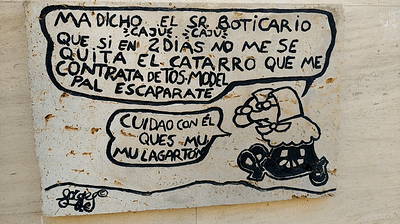 MA DICHO EL SR BOTICARIO
¡CAJUÉ, CAJU!
QUE SI EN 2 DIAS NO ME SE
QUITA EL CATARRO QUE ME
CONTRATA DE TOS-MODEL
PAL ESCAPARATE
CUIDAO CON ÉL
QUES MU
MU LAGARTÓN